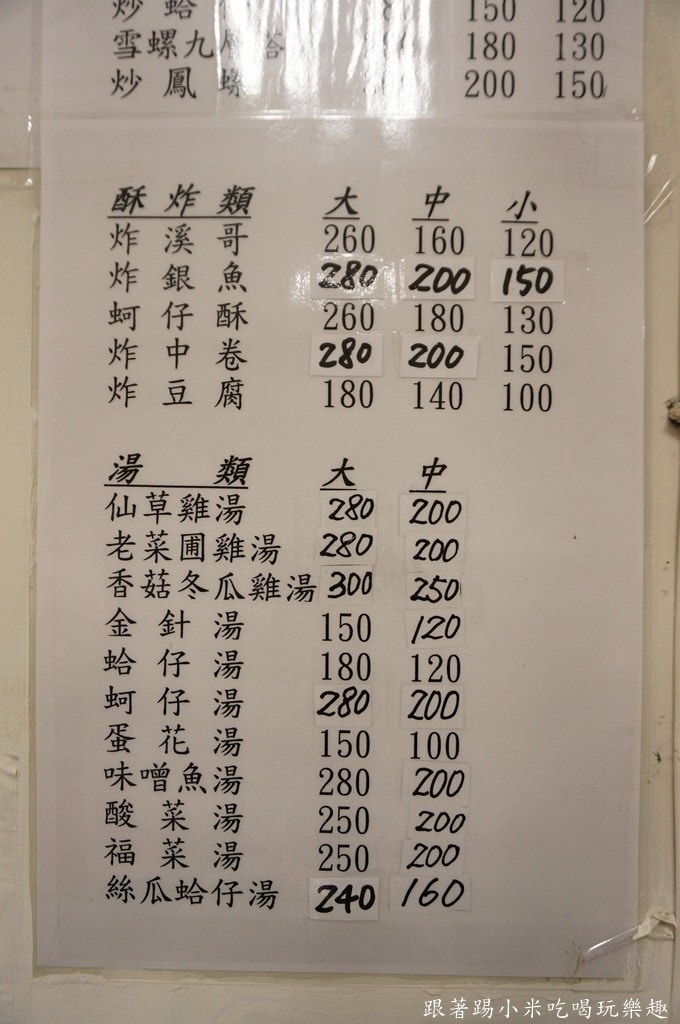 炒蛤 150 120
雪螺九層塔 180 130
炒鳳螺 200 150
酥炸類 大 中 小
炸溪哥 260 160 120
炸銀魚 280 200 150
蚵仔酥 260 180 130
炸中卷 280 200 150
炸豆腐 180 140 100
湯類 大 中
仙草雞湯 280 200
老菜圃雞湯 280 200
香菇冬瓜雞湯 300 250
金針湯 150 120
蛤仔湯 180 120
蚵仔湯 280 200
蛋花湯 150 100
味噌魚湯 280 200
酸菜湯 250 200
福菜湯 250 200
絲瓜蛤仔湯 240 160
跟著踢小米吃喝玩樂趣